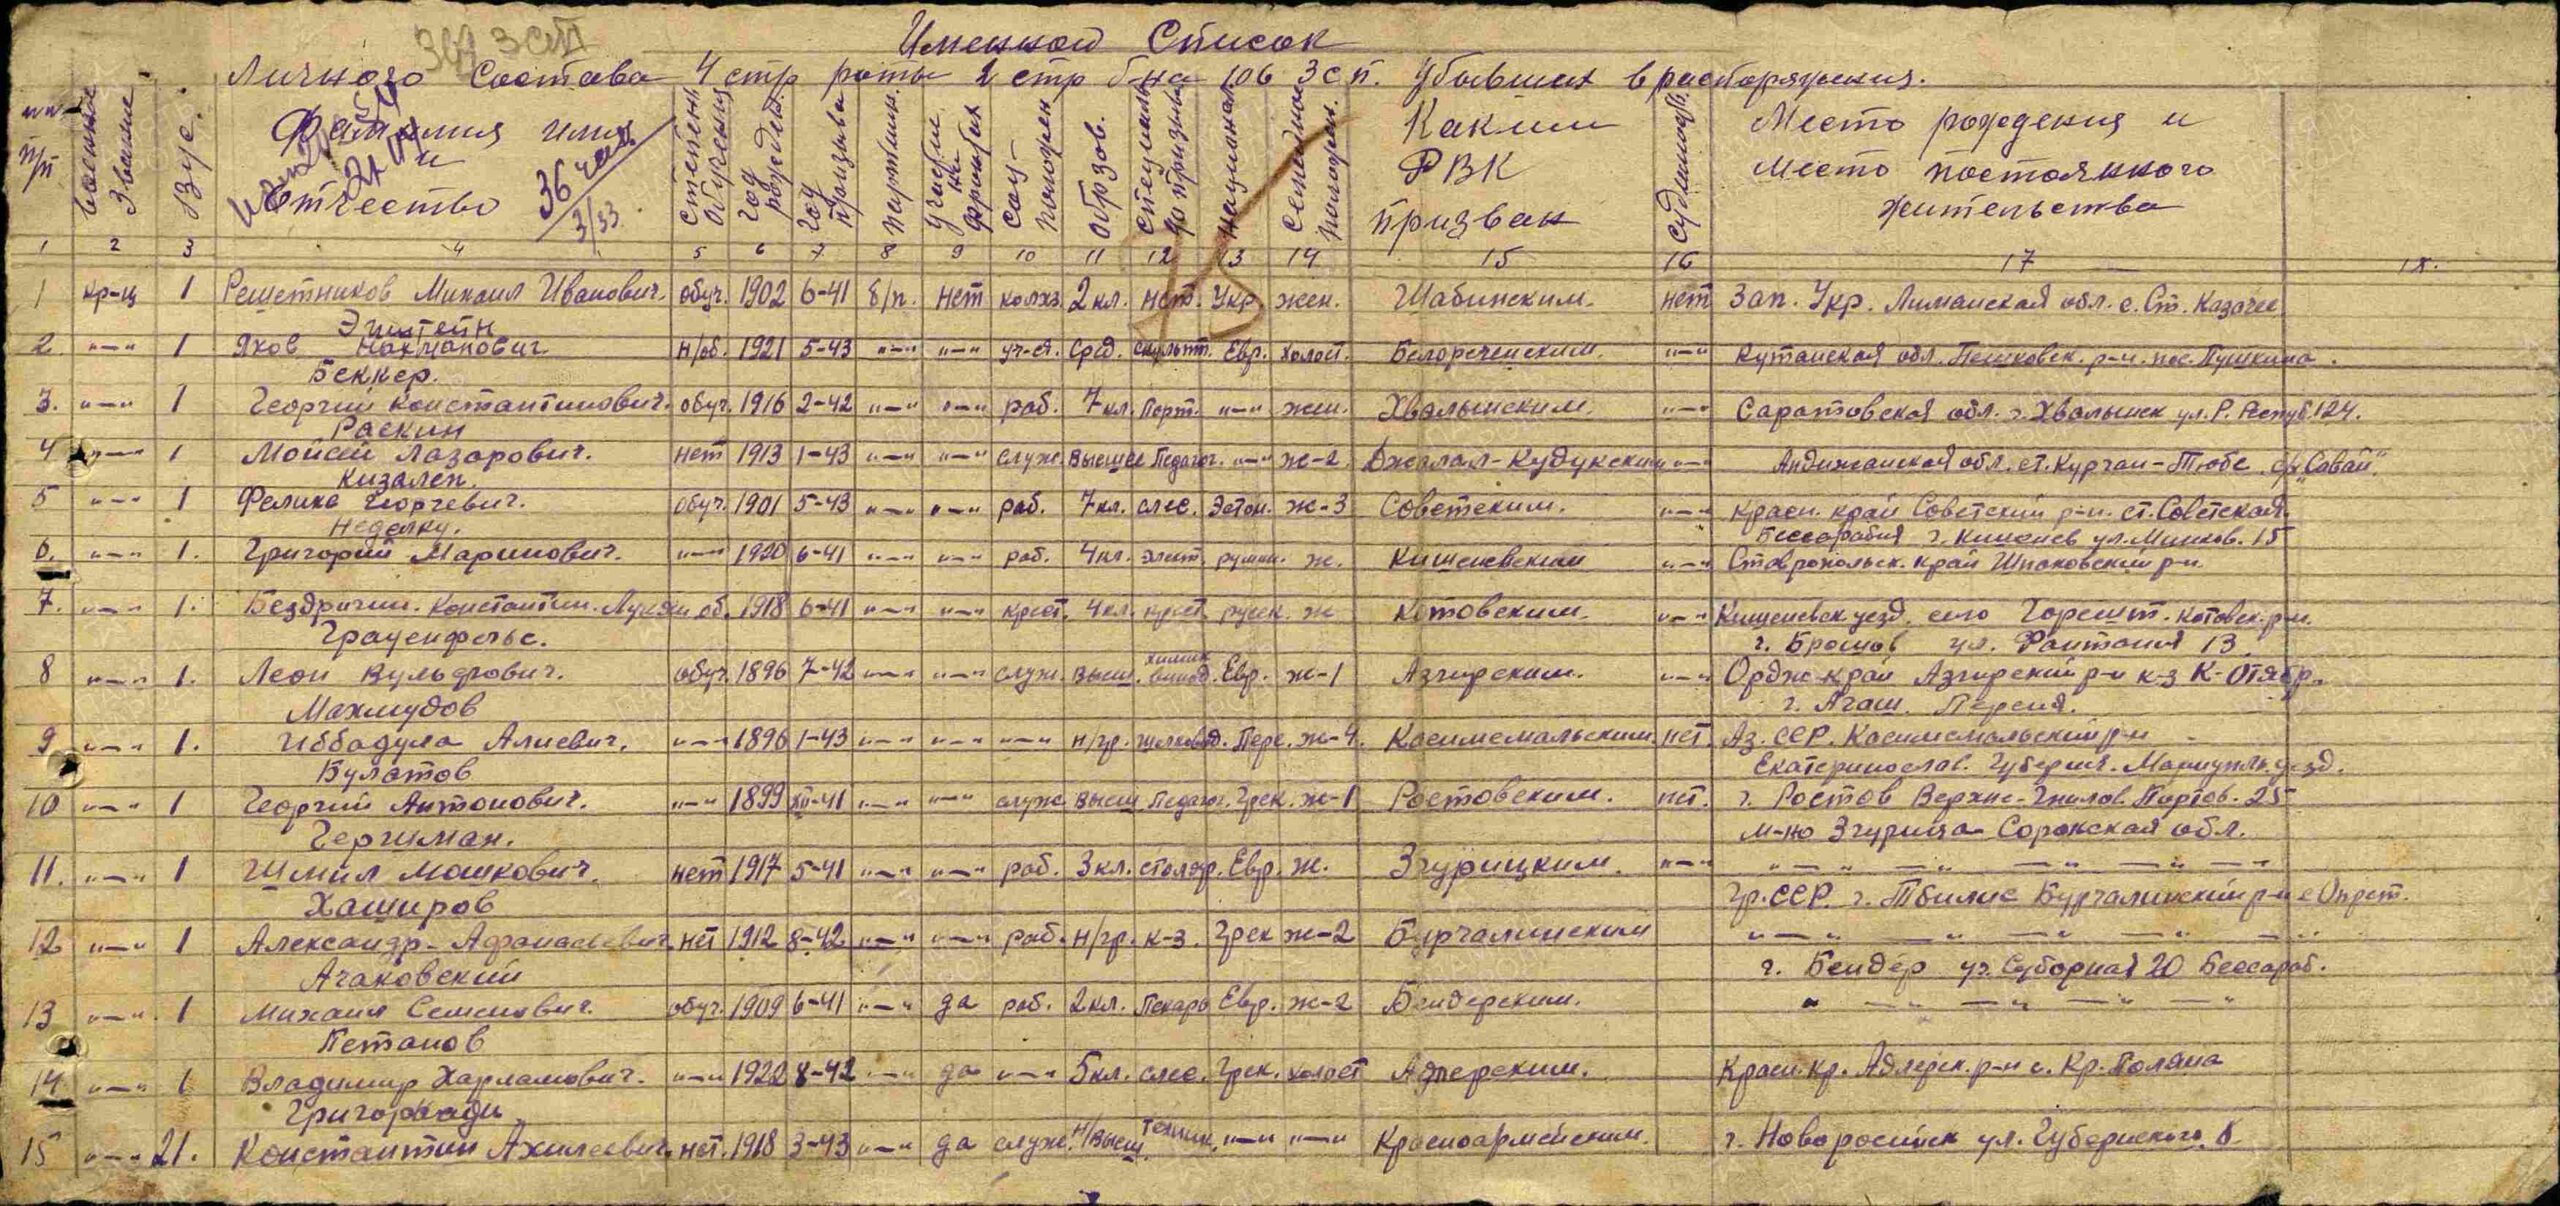 Именной Список
Личного Состава 4 стр роты 2 стр б-на 106 ЗСП. убывших в распоряжения.
№№ п/п
военное звание
ВУС.
Фамилия имя и отчество
36 чел.
3/33
степень обучения
год рожден.
год призыва
партийн.
участвов. на фронтах
соц. положен.
образов.
специальн. до призыва
национал.
семейное положен.
Каким РВК призван
судимость
Место рождения и место постоянного жительства
1 2 3 4 5 6 7 8 9 10 11 12 13 14 15 16 17 18.
1 кр-ц 1 Решетников Михаил Иванович. обуч. 1902 6-41 б/п. нет колхз. 2 кл. нет. Укр жен. Шабинским. нет Зап. Укр. Лиманская обл. с. Ст. Казачее
Эпштейн
2. "—" 1 Яков Нахманович. н/об. 1921 5-43 "—" "—" уч-ся. Сред. скульпт. Евр. холост. Белореченским. "—" Кутаисская обл. Пешковск. р-н. пос. Пушкина.
Беккер.
3. "—" 1 Георгий Константинович. обуч. 1916 2-42 "—" "—" раб. 7 кл. Порт. "—" жен. Хвалынским. "—" Саратовская обл. г. Хвалынск ул. Р. Респуб. 124.
Раскин
4 "—" 1 Мойсей Лазарович. нет 1913 1-43 "—" "—" служ. Высшее Педагог. "—" ж-2 Джалал-Кудукским "—" Андижанская обл. ст. Курган-Тюбе с/х "Савай"
Кизалеп.
5 "—" 1 Феликс Георгевич. обуч. 1901 5-43 "—" "—" раб. 7 кл. слес. Эстон. ж-3 Советским. "—" Красн. край Советский р-н. ст. Советская.
Неделку. Бессарабия г. Кишенев ул. Минков. 15
6. "—" 1. Григорий Маринович. "—" 1920 6-41 "—" "—" раб. 4 кл. элект. румын. ж. Кишеневским "—" Ставропольск. край Шпаковский р-н
7. "—" 1. Бездригин. Константин. Лукян об. 1918 6-41 "—" "—" крест. 4 кл. крест. русск. ж Котовским. "—" Кишеневск уезд. село Горешт. Котовск. р-н.
Грауенфельс. г. Брошов ул. Фантания 13.
8 "—" 1. Леон Вульфович. обуч. 1896 7-42 "—" "—" служ. Высш. химик винод. Евр. ж-1 Азгирским. "—" Ордж край Азгирский р-н к-з К-Отябр.
Махмудов г. Агаш. Персия.
9 "—" 1. Гиббадула Алиевич. "—" 1896 1-43 "—" "—" "—" н/гр. шелковод. Перс. ж-4. Касимсмальским нет. Аз. ССР. Касимсмальский р-н
Булатов Екатеринослав. Губерния. Мариупль. уезд.
10 "—" 1 Георгий Антонович. "—" 1899 XII-41 "—" "—" служ. Высш Педагог. Грек. ж-1 Ростовским. нет. г. Ростов Верхне-Гнилов. Портов. 25
Гергиман. м-ко Згурица Сорокская обл.
11. "—" 1 Шмил Мошкович. нет 1917 5-41 "—" "—" раб. 3 кл. столяр. Евр. ж. Згурицким. "—" "—" —" —" —" —"
Хаширов Гр. ССР. г. Тбилис Бурчалинский р-н с Опрет.
12 "—" 1 Александр-Афанасьевич нет 1912 8-42 "—" "—" раб. н/гр. к-з. Грек ж-2 Бурчалинским "—" —" —" —" —"
Ачаковский г. Бендер ул. Суборная 20 Бессараб.
13 "—" 1 Михаил Семенович. обуч. 1909 6-41 "—" да раб. 2 кл. Пекарь Евр. ж-2 Бендерским. " —" —" —" —"
Петанов
14 "—" 1 Владимир Харламович. "—" 1922 8-42 "—" да "—" 5 кл. слес. Грек. холост Адлерским. Красн. кр. Адлерск. р-н с. Кр. Поляна
Григориади
15 "—" 21. Константин Ахилеевич. нет. 1918 3-43 "—" да служ. н/высш. техник. "—" "—" Красноармейским. г. Новоросийск ул. Губернского. 8